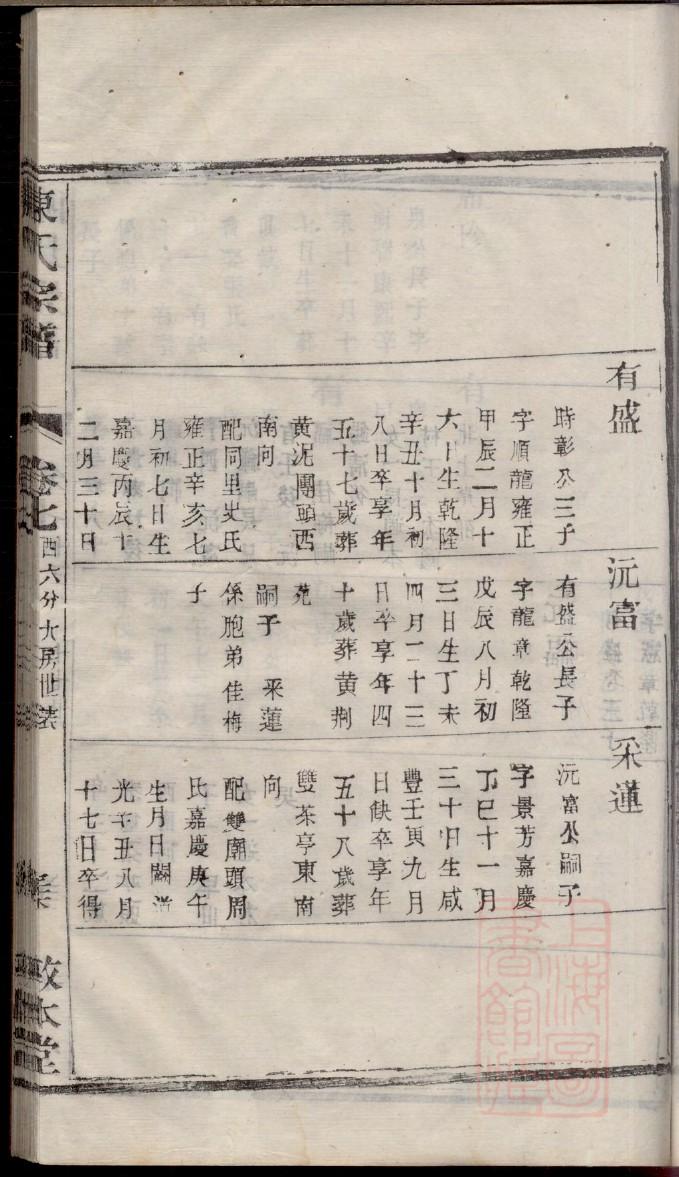 有盛
時彰公三子
字順龍雍正
甲辰二月十
六日生乾隆
辛丑十月初
八日卒享年
五十七歲葬
黄泥團頭西
南向
配同里史氏
雍正辛亥七
月初七日生
嘉慶丙辰十
二月三十日
沅富
有盛公長子
字龍章乾隆
戊辰八月初
三日生丁未
四月二十三
日卒享年四
十歲葬黄荆
苑
嗣子 采蓮
係胞弟佳梅
子
采蓮
沅富公嗣子
字景芳嘉慶
丁巳十一月
三十日生咸
豐壬寅九月
日缺卒享年
五十八歲葬
雙茶亭東南
向
配雙廟頭周
氏嘉慶庚午
生月日闕
光辛丑八月
十七日卒得
陳氏宗譜
卷七
西六分大房世
敦本堂
上海圖書館藏